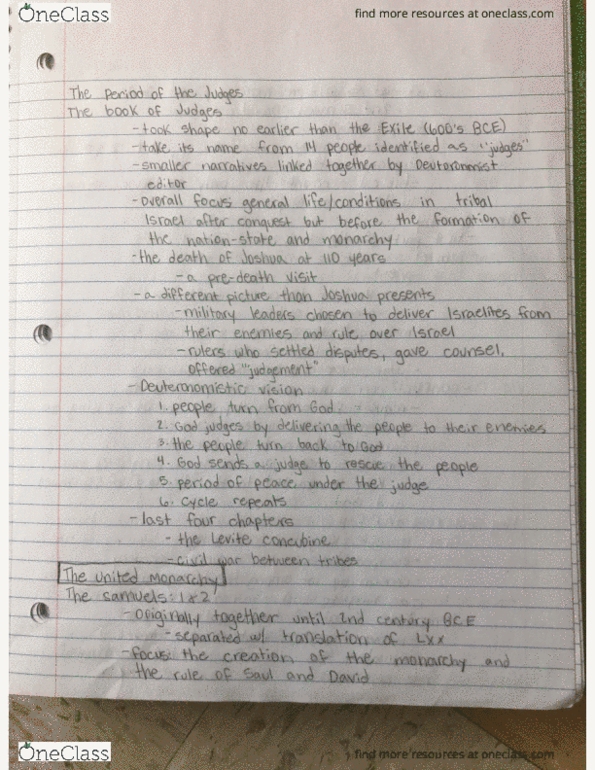 OneClass
find more resources at oneclass.com
The Period of the Judges
The book of Judges
- took shape no earlier than the Exile (600's BCE)
- take its name from 14 people identified as "judges"
- smaller narratives linked together by Deuteronomist
editor
- overall focus general life/conditions in tribal
Israel after conquest but before the formation of
the nation-state and monarchy
- the death of Joshua at 110 years
- a pre-death visit
- a different picture than Joshua presents
- military leaders chosen to deliver Israelites from
their enemies and rule over Israel
- rulers who settled disputes, gave counsel,
offered "judgement"
- Deuteronomistic vision
1. people turn from God
2. God judges by delivering the people to their enemies
3. the people turn back to God
4. God sends a judge to rescue the people
5. period of peace under the judge
6. Cycle repeats
- last four chapters
- the Levite concubine
- civil war between tribes
The United Monarchy
The Samuels: 1 & 2
- Originally together until 2nd century BCE
- separated w/ translation of LXX
- focus: the creation of the monarchy and
the rule of Saul and David
OneClass
find more resources at oneclass.com